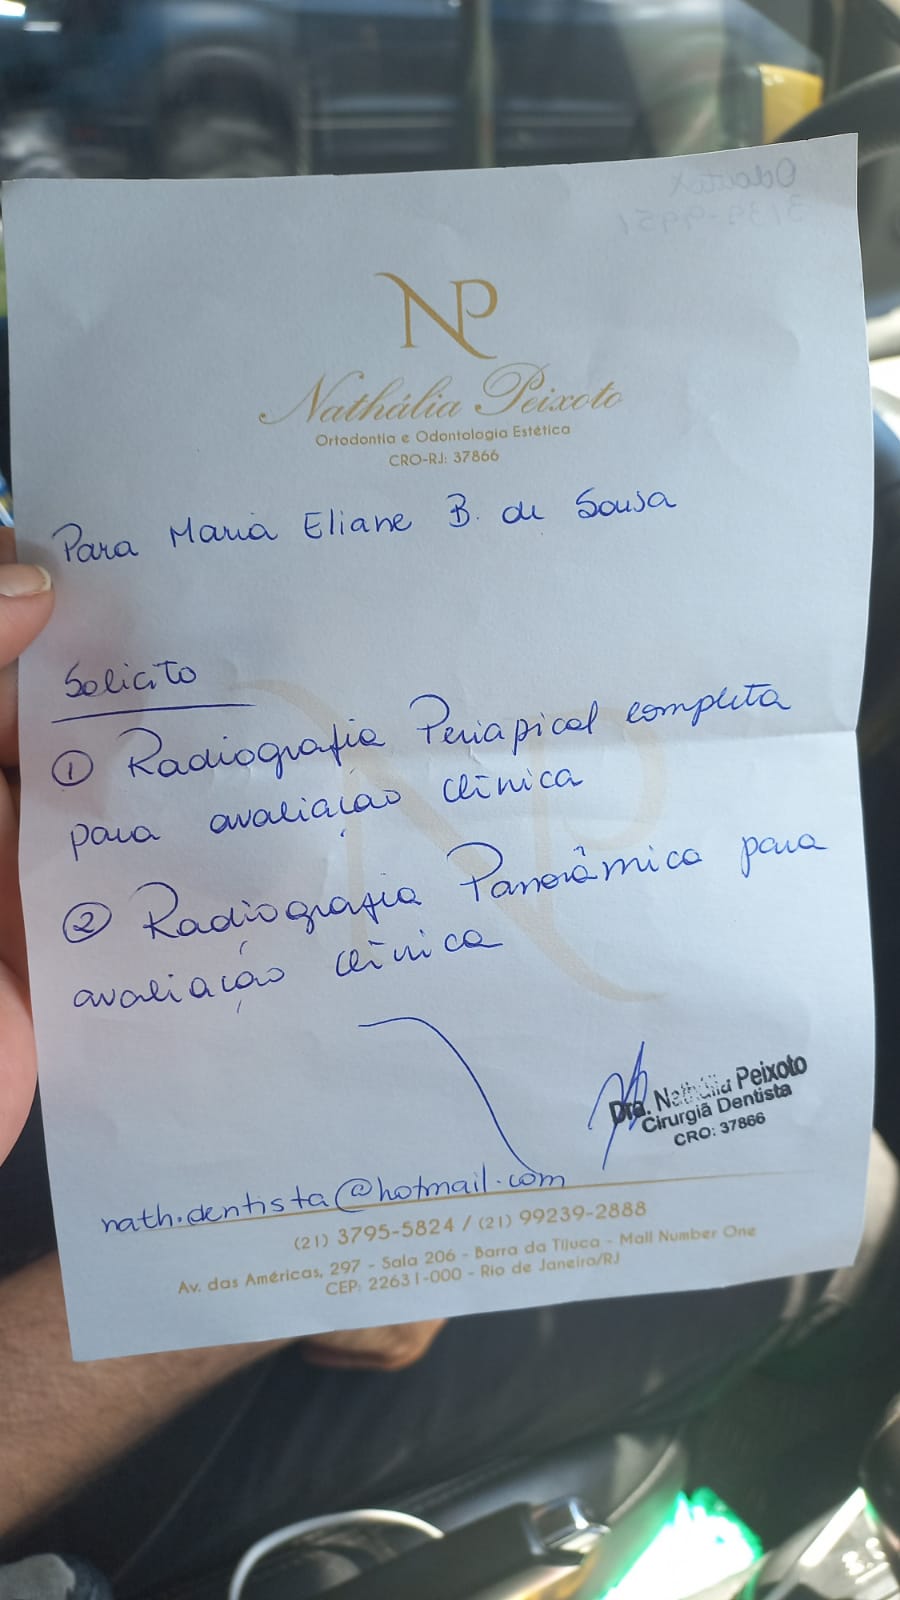 NP
Nathália Peixoto
Ortodontia e Odontologia Estética
CRO-RJ: 37866
Para Maria Eliane B. de Sousa
Solicito
① Radiografia Periapical completa
para avaliação clínica
② Radiografia Panorâmica para
avaliação clínica
Dra. Nathália Peixoto
Cirurgiã Dentista
CRO: 37866
nath.dentista@hotmail.com
(21) 3795-5824 / (21) 99239-2888
Av. das Américas, 297 - Sala 206 - Barra da Tijuca - Mall Number One
CEP: 22631-000 - Rio de Janeiro/RJ